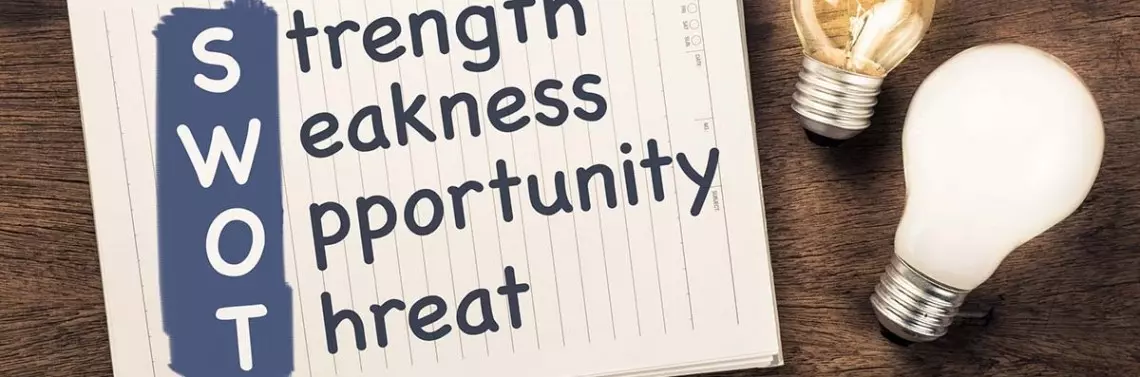 Strength
Weakness
Opportunity
Threat